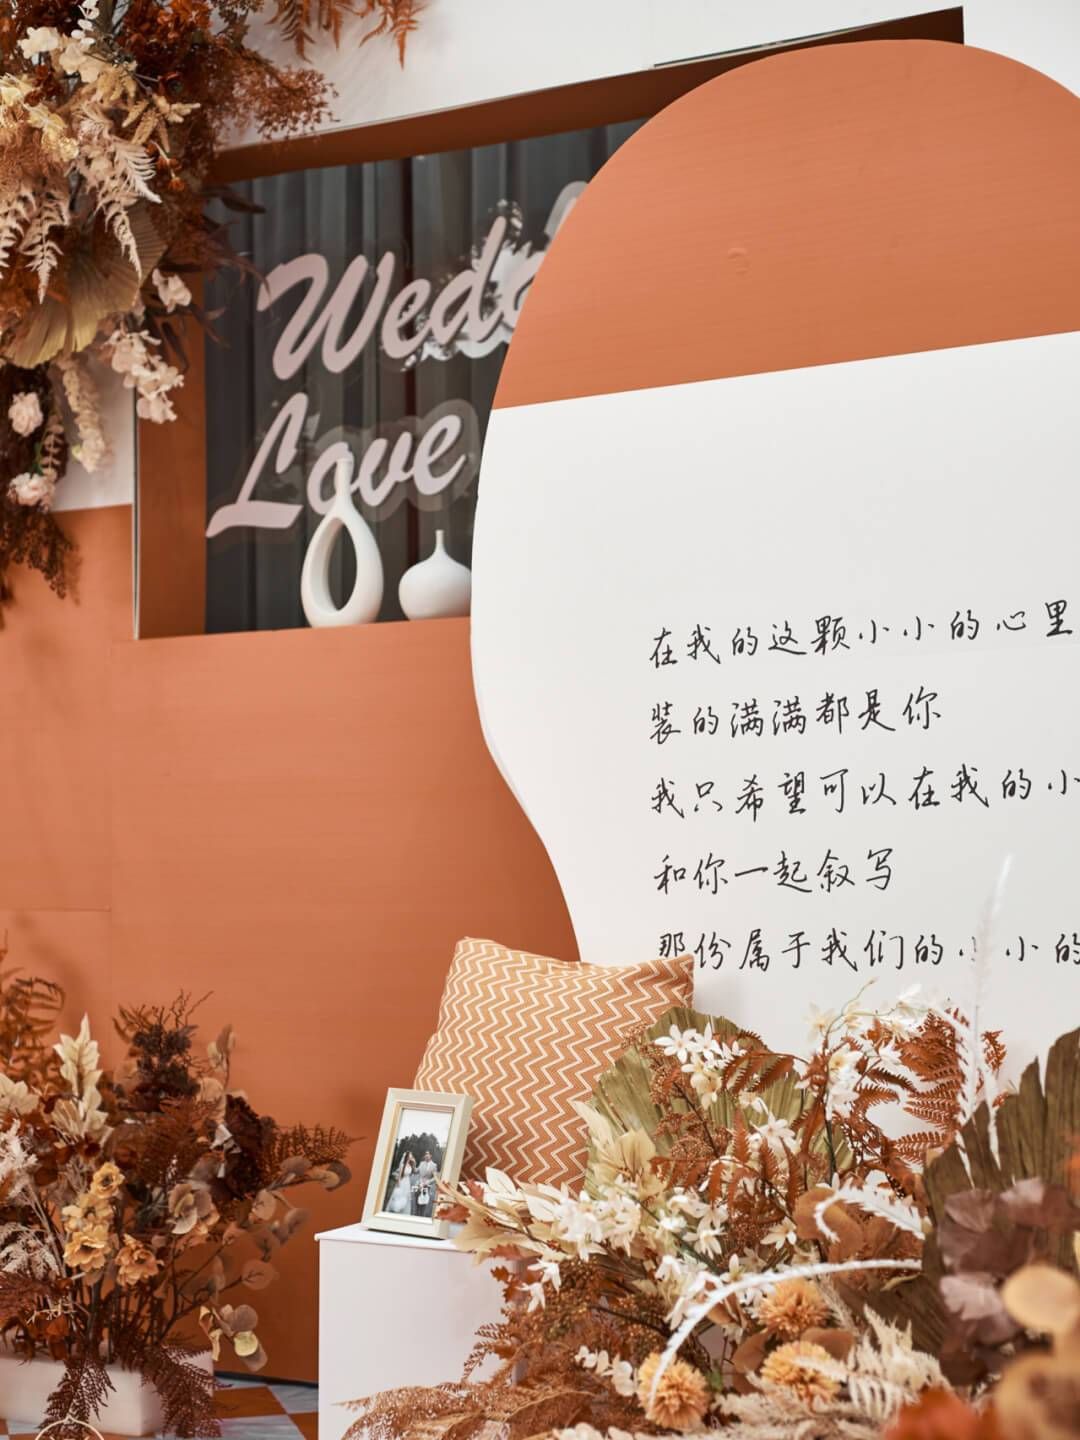 Wedd
Love
在我的这颗小小的心里
装的满满都是你
我只希望可以在我的小
和你一起叙写
那份属于我们的小小的